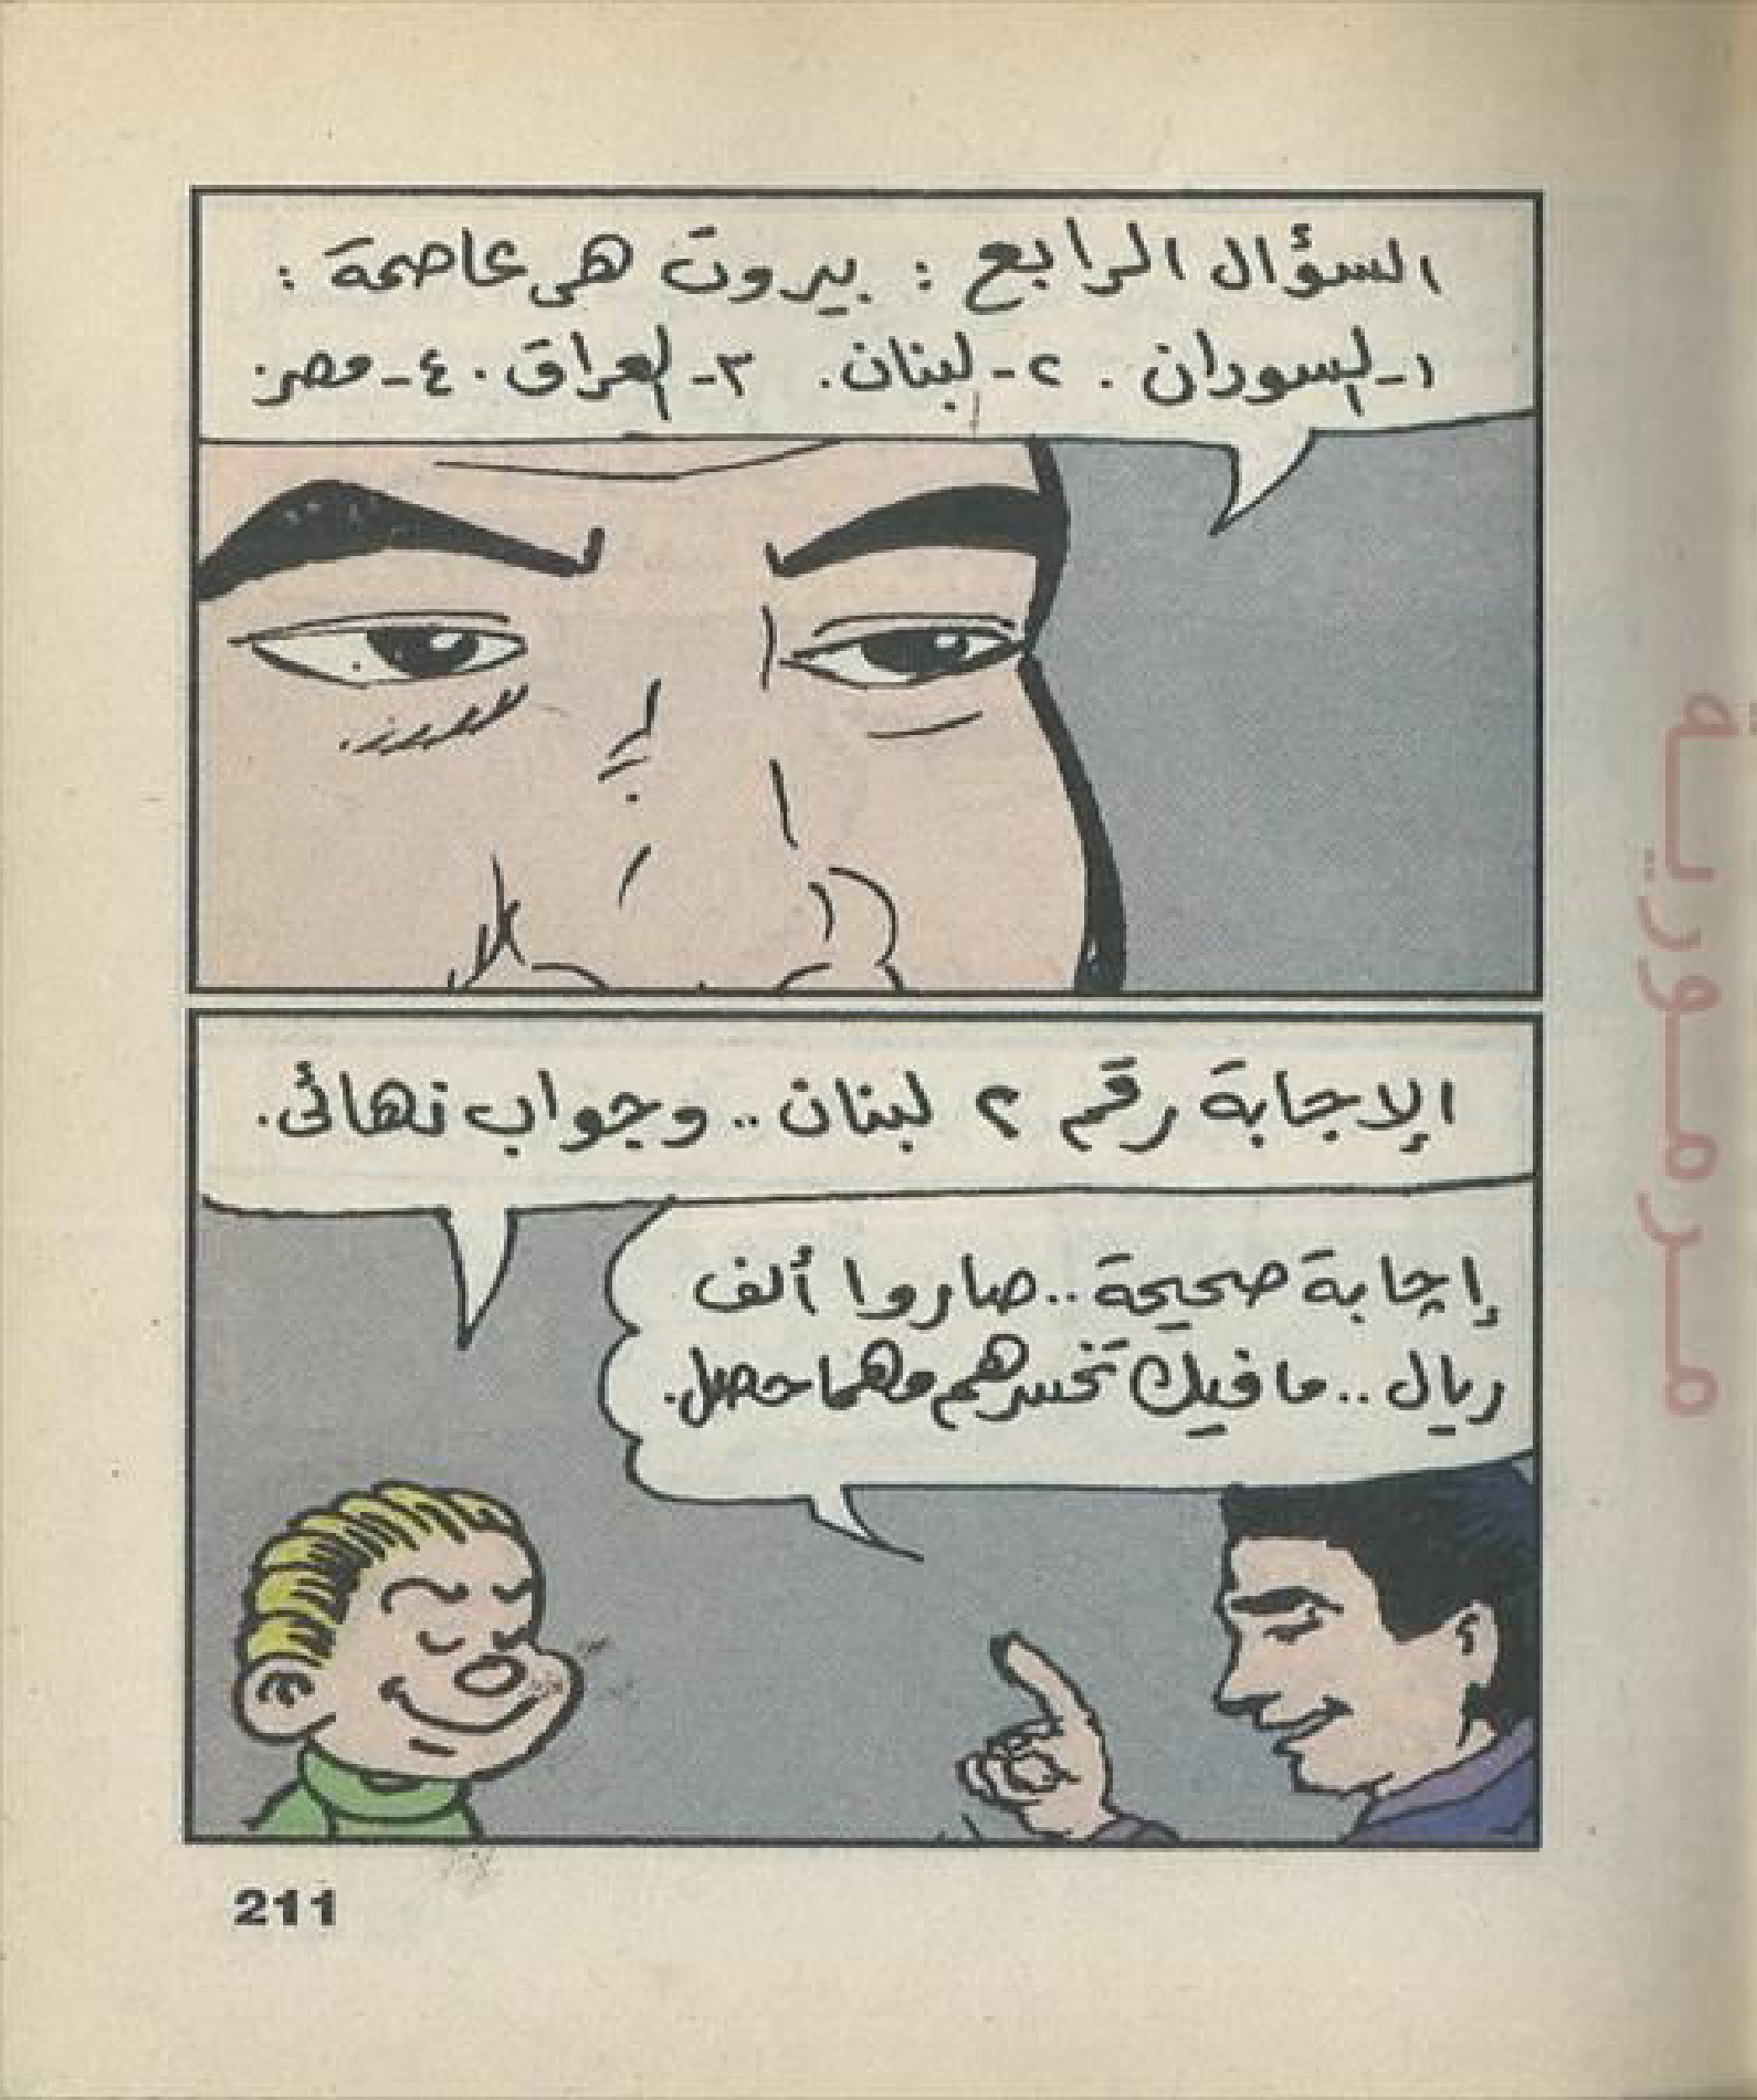 السؤال الرابع : بيروت هى عاصمة :
١- السودان . ٢- لبنان . ٣- العراق . ٤- مصر .
الإجابة رقم ٢ لبنان .. وجواب نهائى .
إجابة صحيحة .. صاروا ألف
ريال .. ما فيك تخسرهم مهما حصل .
211
مرمورية